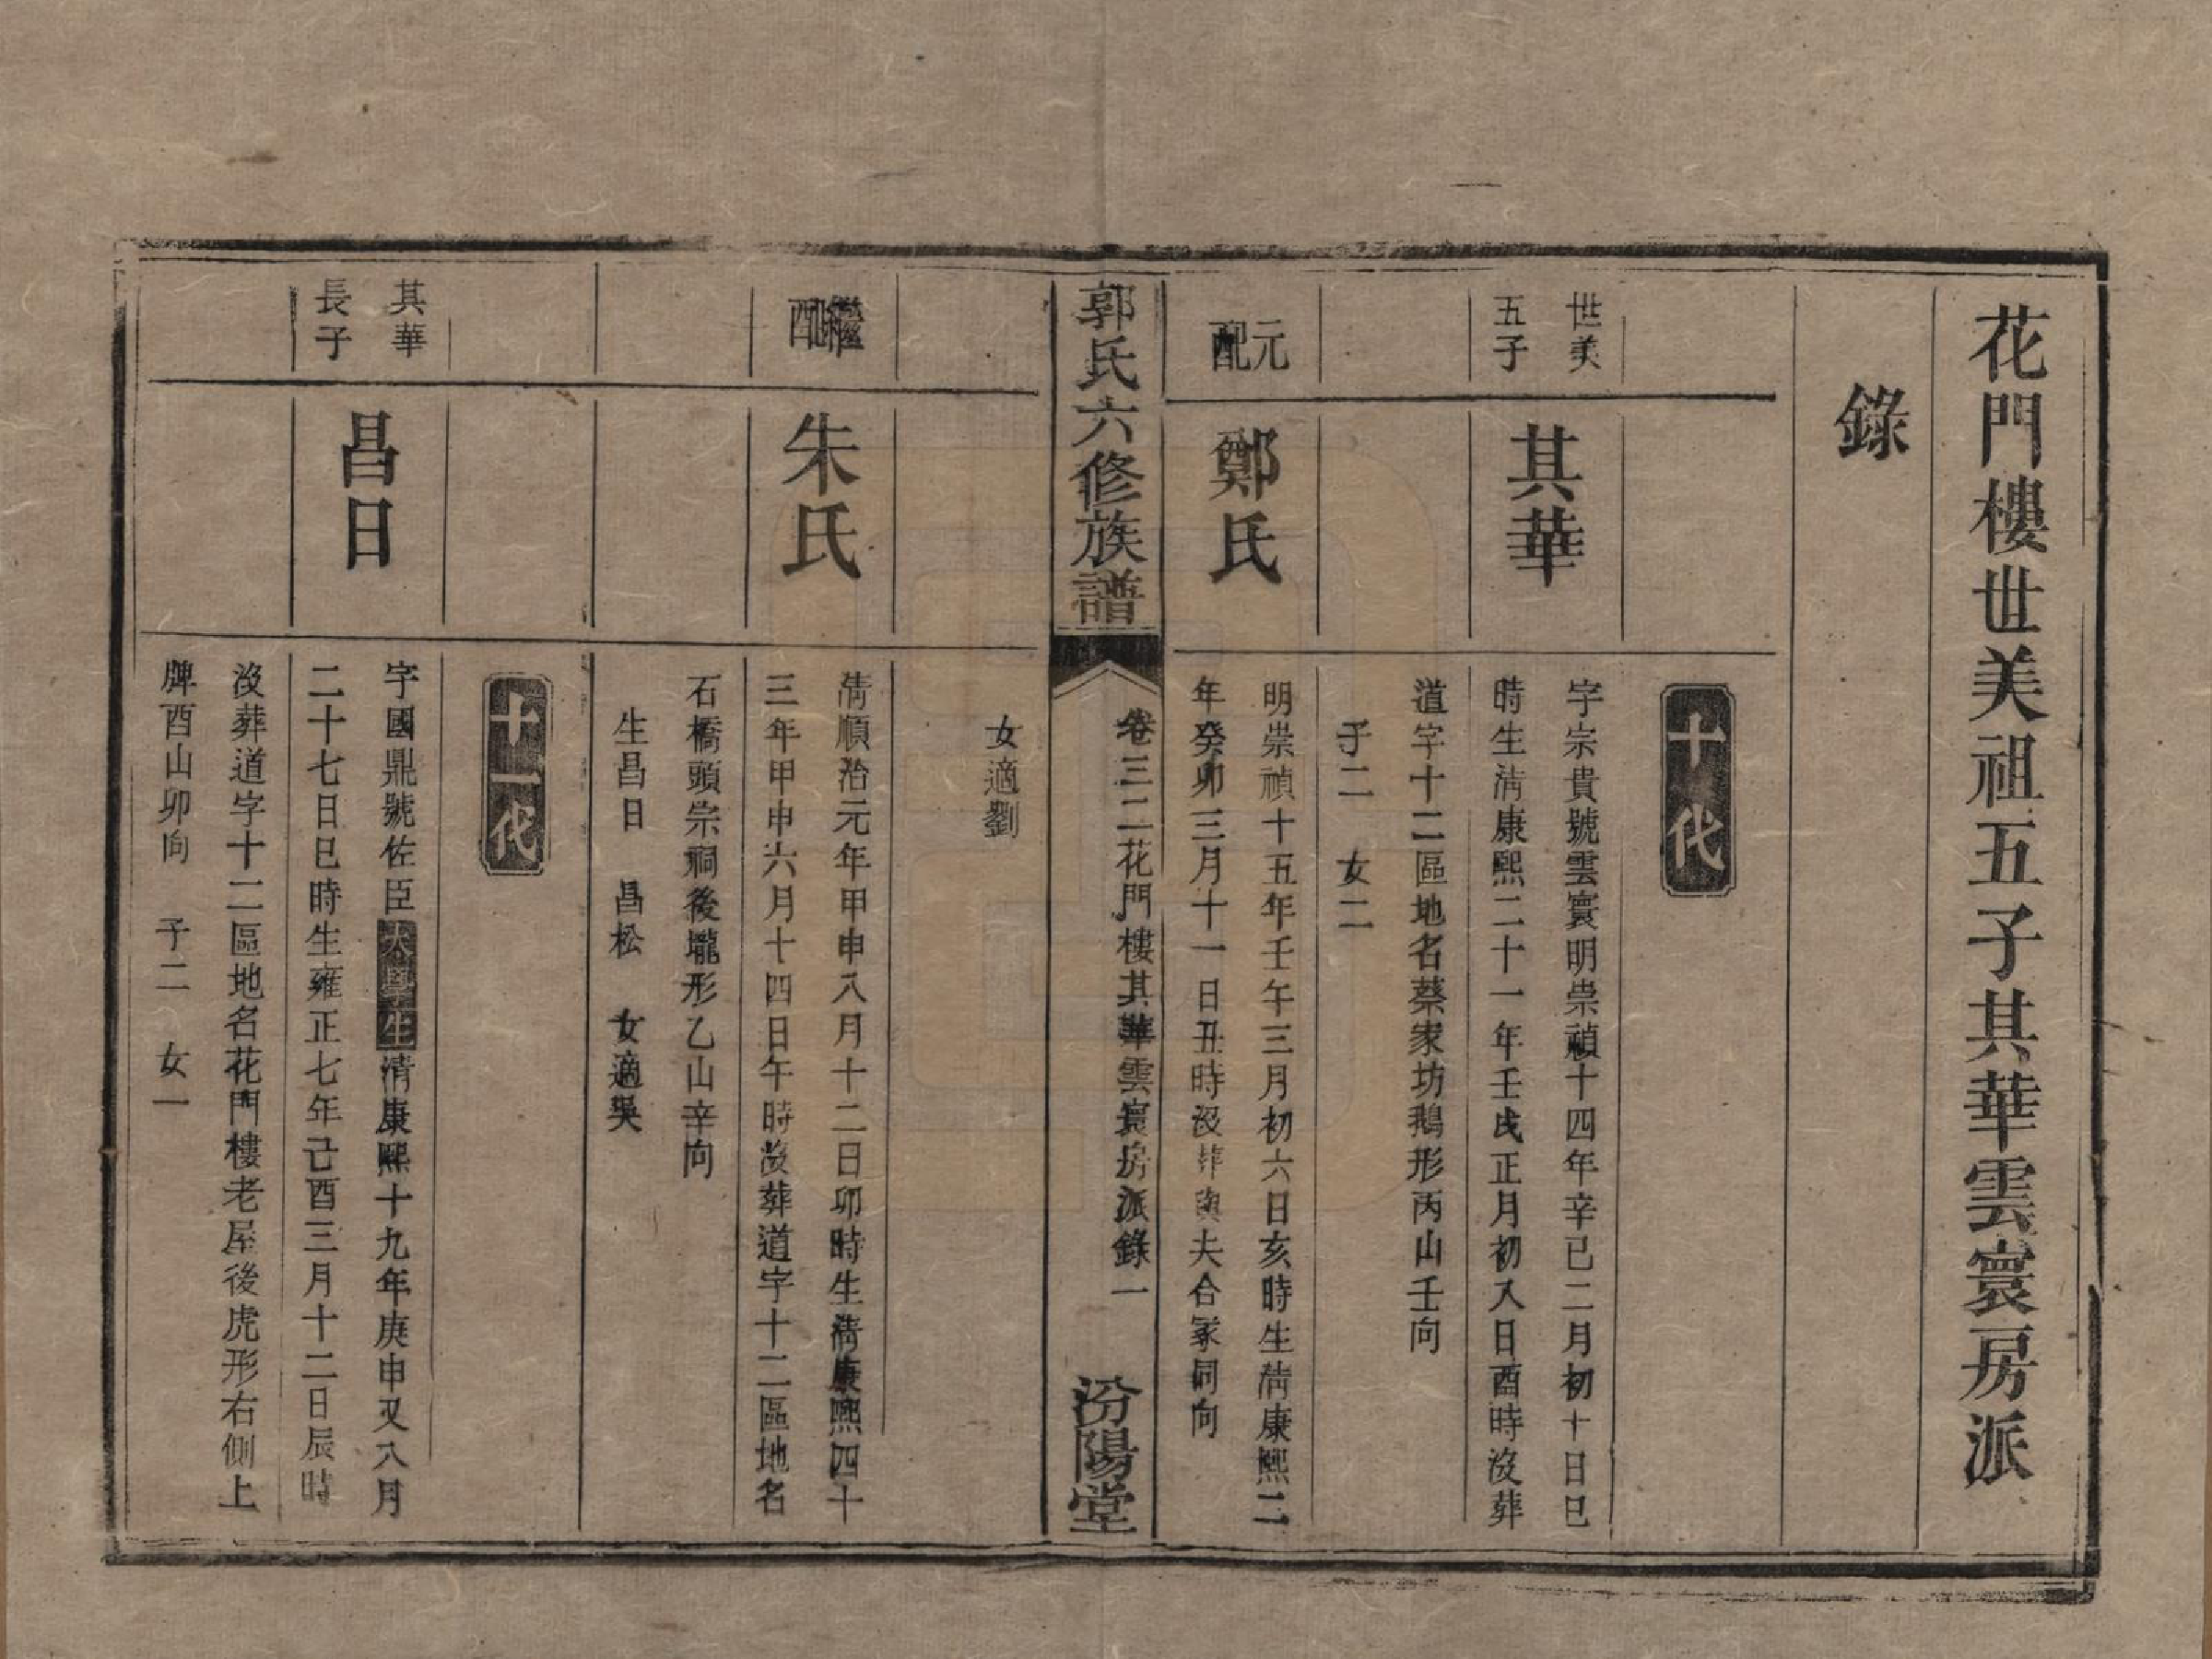 花門樓世美祖五子其華雲寰房派
錄
十代
世美
五子
其華
字宗貴號雲寰明崇禎十四年辛巳二月初十日巳
時生清康熙二十一年壬戌正月初八日酉時沒葬
道字十二區地名蔡家坊鵝形丙山壬向
子二 女二
元配
鄭氏
明崇禎十五年壬午三月初六日亥時生清康熙二
年癸卯三月十一日丑時沒葬與夫合冢同向
郭氏六修族譜
卷三二花門樓其華雲寰房派錄一
汾陽堂
女適劉
繼配
朱氏
清順治元年甲申八月十二日卯時生清康熙四十
三年甲申六月十四日午時沒葬道字十二區地名
石橋頭宗祠後壠形乙山辛向
生昌日 昌松 女適吳
十一代
其華
長子
昌日
字國鼎號佐臣太學生清康熙十九年庚申又八月
二十七日巳時生雍正七年己酉三月十二日辰時
沒葬道字十二區地名花門樓老屋後虎形右側上
牌酉山卯向 子二 女一